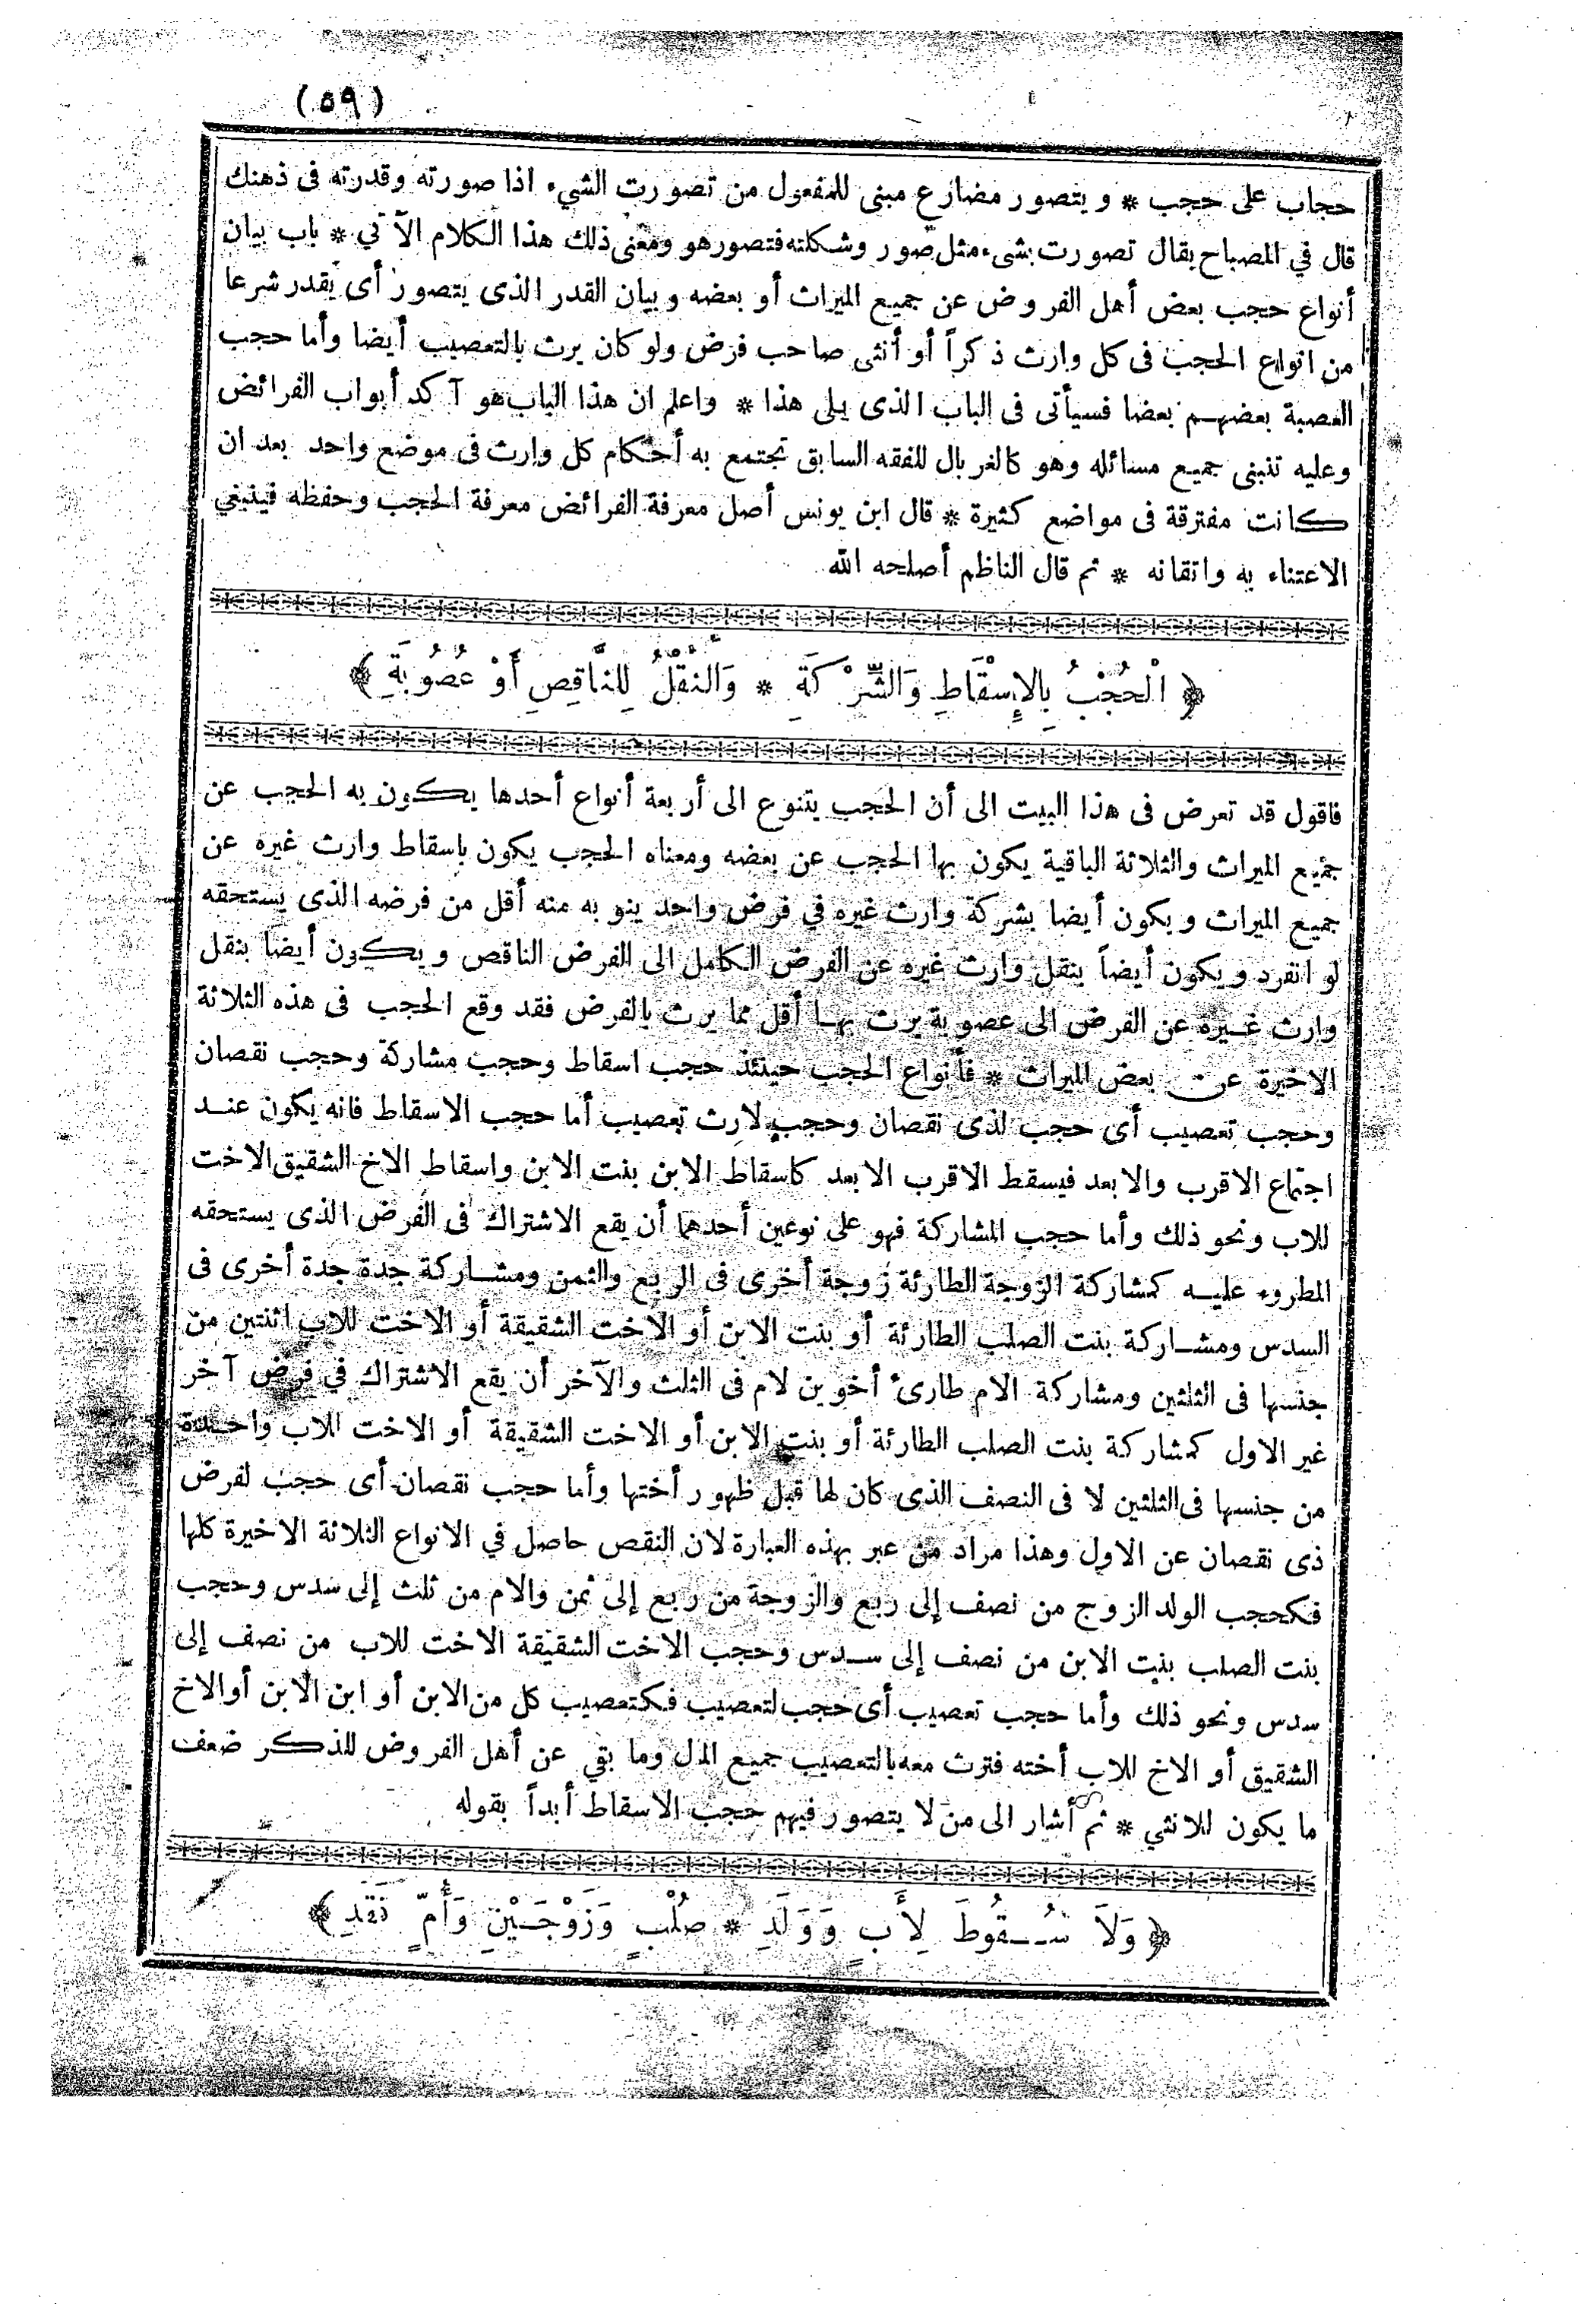 (٥٩)
حجاب على حجب * ويتصور مضارع مبنى للمفعول من تصورت الشيء اذا صورته وقدرته فى ذهنك
قال في المصباح يقال تصورت بشيء مثل صور وشكلته فتصور هو ومعنى ذلك هذا الكلام الآتي * باب بيان
أنواع حجب بعض أهل الفروض عن جميع الميراث أو بعضه وبيان القدر الذى يتصور أى يقدر شرعا
من انواع الحجب فى كل وارث ذكراً أو أنثى صاحب فرض ولو كان يرث بالتعصيب أيضا وأما حجب
العصبة بعضهم بعضا فسيأتى فى الباب الذى يلى هذا * واعلم ان هذا الباب هو آكد أبواب الفرائض
وعليه تنبنى جميع مسائله وهو كالغربال للفقه السابق تجتمع به أحكام كل وارث فى موضع واحد بعد ان
كانت مفترقة فى مواضع كثيرة * قال ابن يونس أصل معرفة الفرائض معرفة الحجب وحفظه فينبغي
الاعتناء به واتقانه * ثم قال الناظم أصلحه الله
﴿ الْحُجْبُ بِالإِسْقَاطِ وَالشِّرْكَةِ * وَالنَّقْلُ لِلنَّاقِصِ أَوْ عُصُوبَةِ ﴾
فاقول قد تعرض فى هذا البيت الى أن الحجب يتنوع الى أربعة أنواع أحدها يكون به الحجب عن
جميع الميراث والثلاثة الباقية يكون بها الحجب عن بعضه ومعناه الحجب يكون باسقاط وارث غيره عن
جميع الميراث ويكون أيضا بشركة وارث غيره في فرض واحد ينوبه منه أقل من فرضه الذى يستحقه
لو انفرد ويكون أيضاً بنقل وارث غيره عن الفرض الكامل الى الفرض الناقص ويكون أيضاً بنقل
وارث غيره عن الفرض الى عصوبة يرث بها أقل مما يرث بالفرض فقد وقع الحجب فى هذه الثلاثة
الاخيرة عن بعض الميراث * فأنواع الحجب حينئذ حجب اسقاط وحجب مشاركة وحجب نقصان
وحجب تعصيب أى حجب لذى نقصان وحجب لارث تعصيب أما حجب الاسقاط فانه يكون عند
اجتماع الاقرب والابعد فيسقط الاقرب الابعد كاسقاط الابن بنت الابن واسقاط الاخ الشقيق الاخت
للاب ونحو ذلك وأما حجب المشاركة فهو على نوعين أحدهما أن يقع الاشتراك فى الفرض الذى يستحقه
المطروء عليه كمشاركة الزوجة الطارئة زوجة أخرى فى الربع والثمن ومشاركة جدة جدة أخرى فى
السدس ومشاركة بنت الصلب الطارئة أو بنت الابن أو الاخت الشقيقة أو الاخت للاب اثنتين من
جنسها فى الثلثين ومشاركة الام طارئ أخوين لام فى الثلث والآخر أن يقع الاشتراك في فرض آخر
غير الاول كمشاركة بنت الصلب الطارئة أو بنت الابن أو الاخت الشقيقة أو الاخت للاب واحدة
من جنسها فى الثلثين لا فى النصف الذى كان لها قبل ظهور أختها وأما حجب نقصان أى حجب لفرض
ذى نقصان عن الاول وهذا مراد من عبر بهذه العبارة لان النقص حاصل في الانواع الثلاثة الاخيرة كلها
فكحجب الولد الزوج من نصف إلى ربع والزوجة من ربع إلى ثمن والام من ثلث إلى سدس وحجب
بنت الصلب بنت الابن من نصف إلى سدس وحجب الاخت الشقيقة الاخت للاب من نصف إلى
سدس ونحو ذلك وأما حجب تعصيب أى حجب لتعصيب فكتعصيب كل من الابن أو ابن الابن أو الاخ
الشقيق أو الاخ للاب أخته فترث معه بالتعصيب جميع المال وما بقي عن أهل الفروض للذكر ضعف
ما يكون للانثي * ثم أشار الى من لا يتصور فيهم حجب الاسقاط أبداً بقوله
﴿ وَلاَ سُقُوطَ لِأَبٍ وَوَلَدِ * صُلْبٍ وَزَوْجَيْنِ وَأُمٍّ فَقَدِ ﴾